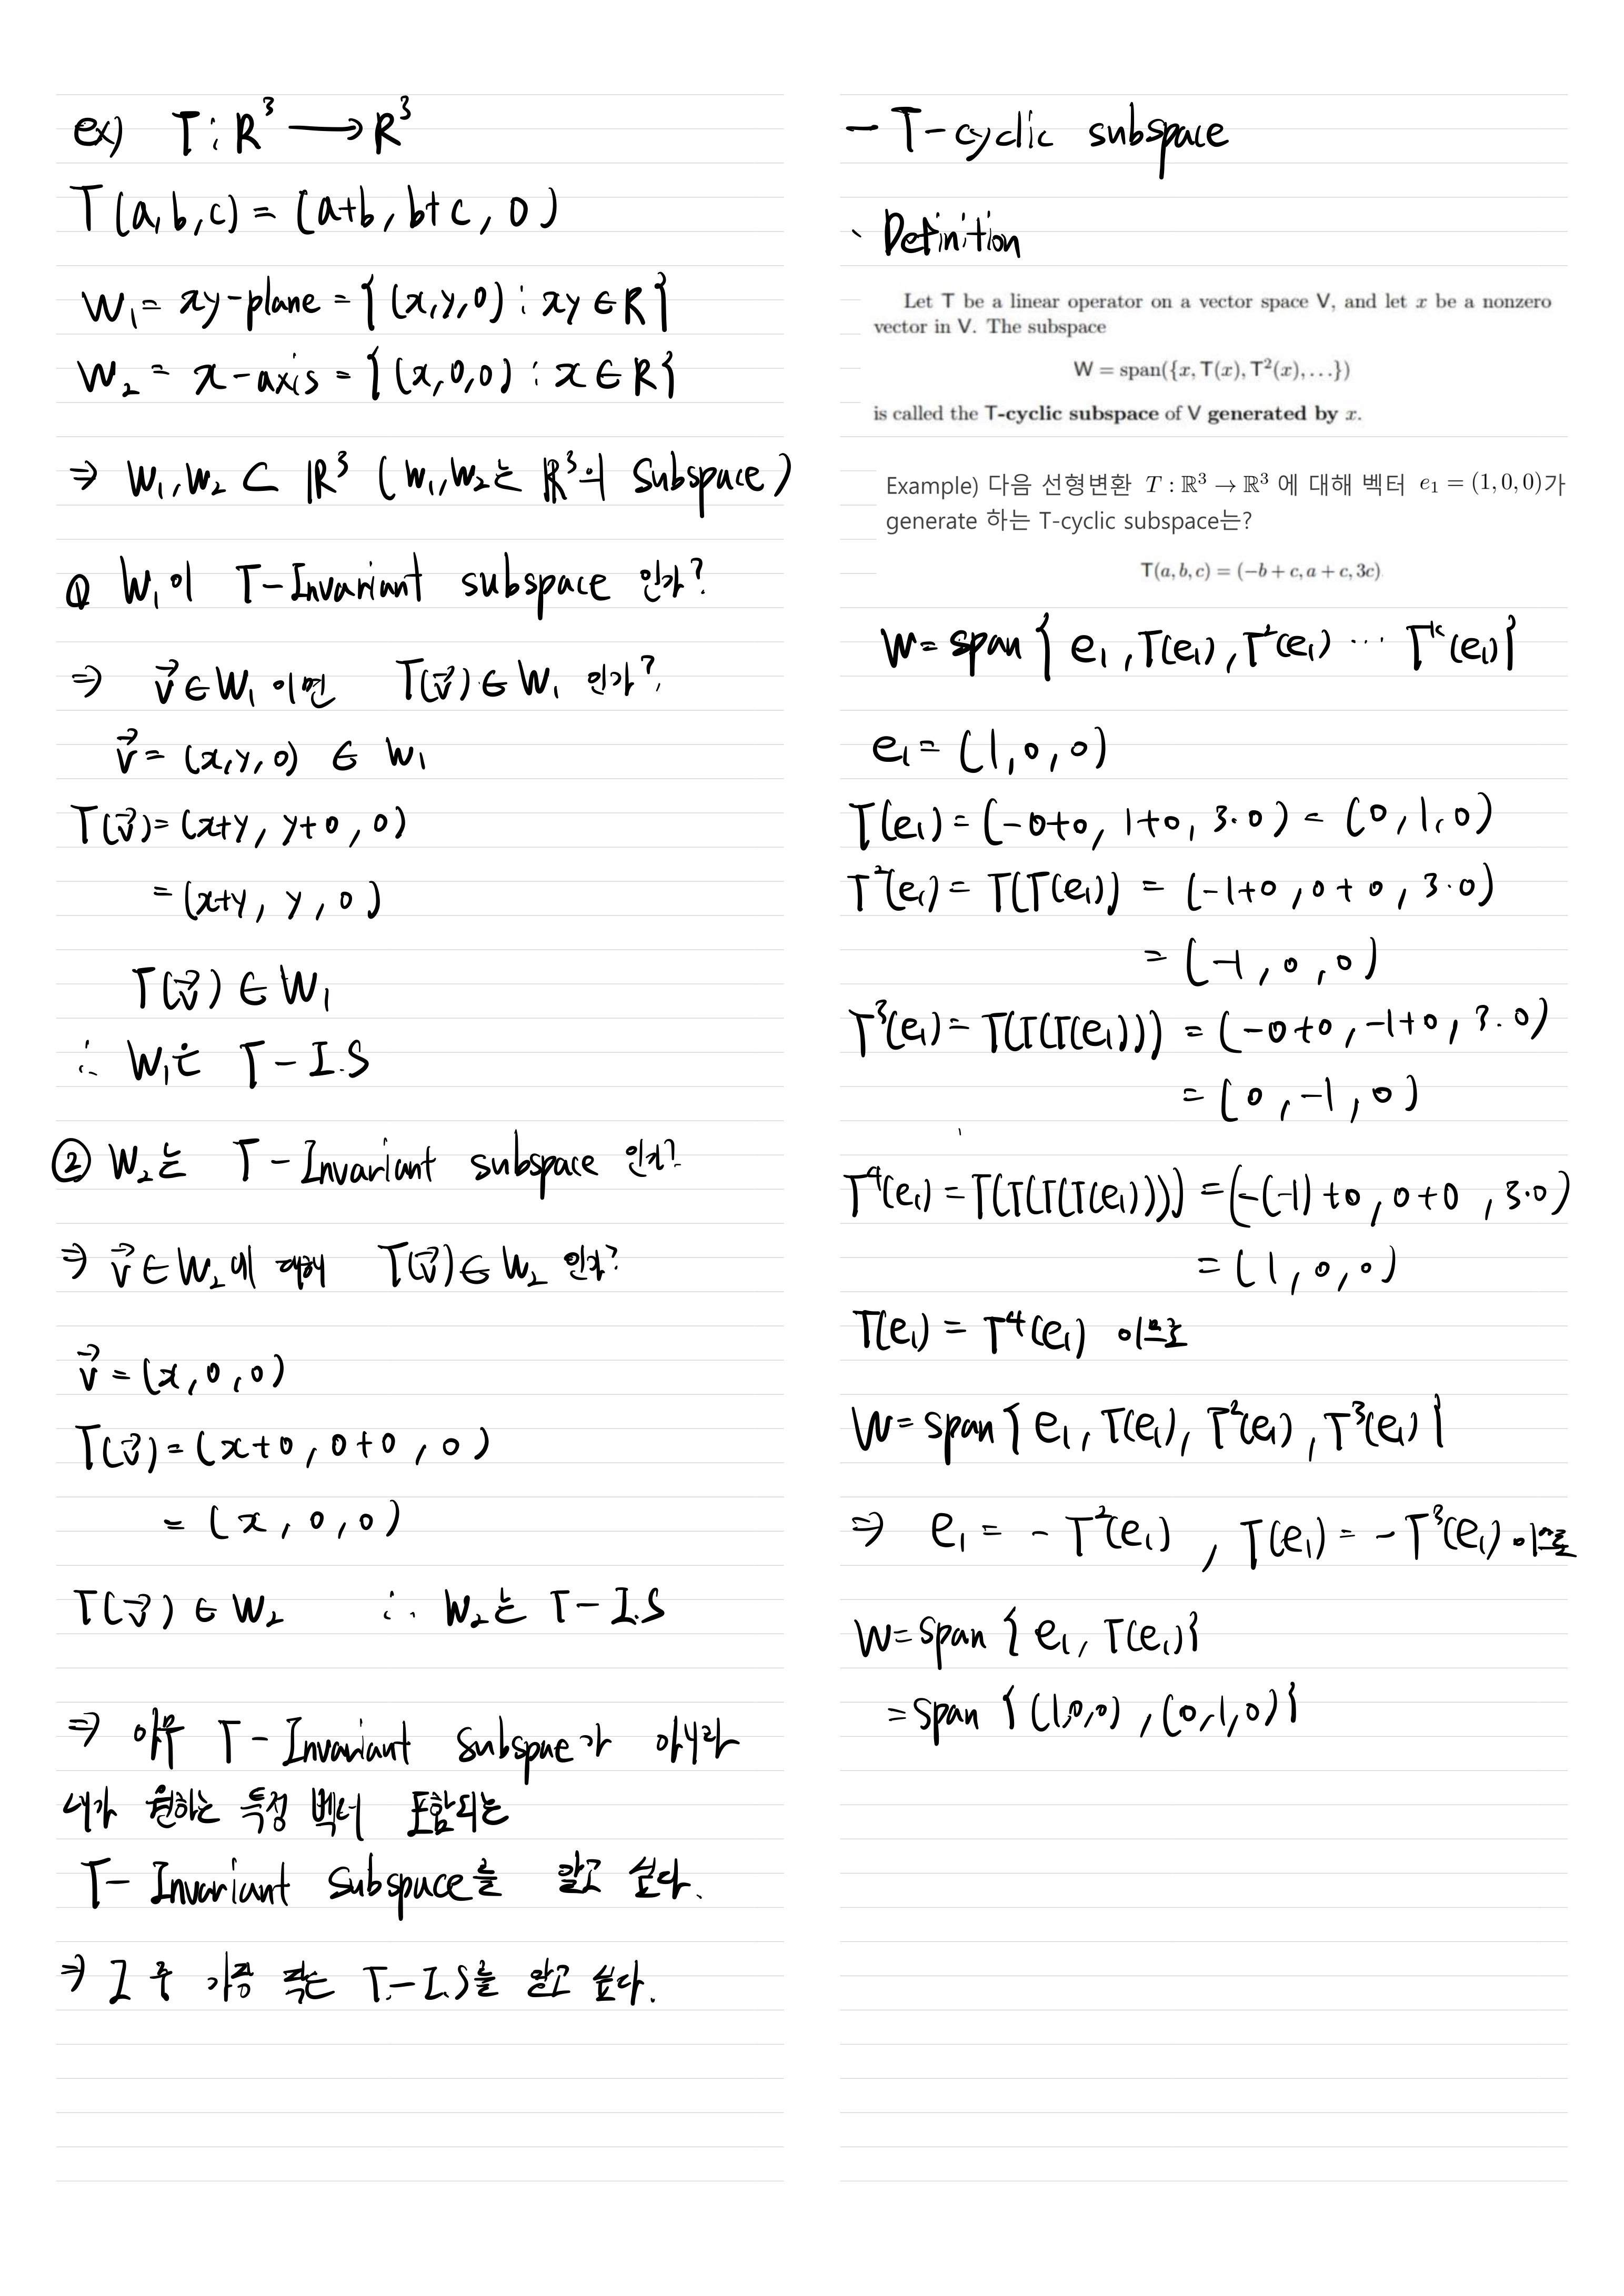 ex) T : R³ ⟶ R³
T(a,b,c) = (a+b, b+c, 0)
W₁ = xy-plane = {(x,y,0) : xy ∈ R}
W₂ = x-axis = {(x,0,0) : x ∈ R}
⇒ W₁, W₂ ⊂ ℝ³ (W₁, W₂는 ℝ³의 Subspace)
① W₁이 T-Invariant subspace 인가?
⇒ v⃗ ∈ W₁ 이면 T(v⃗) ∈ W₁ 인가?
v⃗ = (x,y,0) ∈ W₁
T(v⃗) = (x+y, y+0, 0)
= (x+y, y, 0)
T(v⃗) ∈ W₁
∴ W₁는 T-I.S
② W₂는 T-Invariant subspace 인가?
⇒ v⃗ ∈ W₂에 대해 T(v⃗) ∈ W₂ 인가?
v⃗ = (x,0,0)
T(v⃗) = (x+0, 0+0, 0)
= (x, 0, 0)
T(v⃗) ∈ W₂ ∴ W₂는 T-I.S
⇒ 아무 T-Invariant Subspace가 아니라
내가 원하는 특정 벡터 포함되는
T-Invariant Subspace를 알고 싶다.
⇒ 그 중 가장 작은 T-I.S를 알고 싶다.
- T-cyclic subspace
Definition
Let T be a linear operator on a vector space V, and let x be a nonzero
vector in V. The subspace
W = span({x, T(x), T²(x), . . .})
is called the T-cyclic subspace of V generated by x.
Example) 다음 선형변환 T : ℝ³ → ℝ³ 에 대해 벡터 e₁ = (1, 0, 0)가
generate 하는 T-cyclic subspace는?
T(a, b, c) = (−b + c, a + c, 3c)
W = span {e₁, T(e₁), T²(e₁) ··· Tᵏ(e₁)}
e₁ = (1, 0, 0)
T(e₁) = (-0+0, 1+0, 3·0) = (0, 1, 0)
T²(e₁) = T(T(e₁)) = (-1+0, 0+0, 3·0)
= (-1, 0, 0)
T³(e₁) = T(T(T(e₁))) = (-0+0, -1+0, 3·0)
= (0, -1, 0)
T⁴(e₁) = T(T(T(T(e₁)))) = (-(-1)+0, 0+0, 3·0)
= (1, 0, 0)
T(e₁) = T⁴(e₁) 이므로
W = span {e₁, T(e₁), T²(e₁), T³(e₁)}
⇒ e₁ = -T²(e₁), T(e₁) = -T³(e₁) 이므로
W = span {e₁, T(e₁)}
= span {(1,0,0), (0,1,0)}